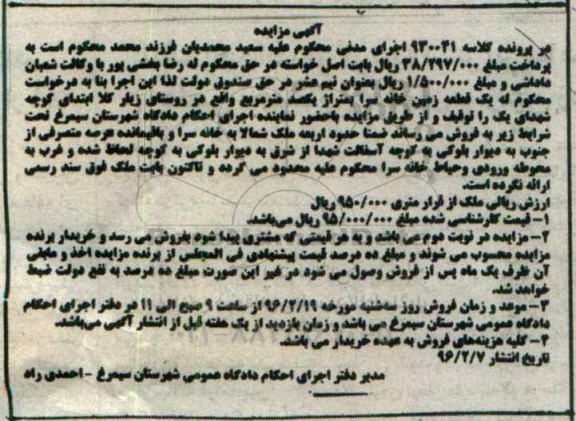 آگهی مزایده
در پرونده کلاسه ۹۳۰۰۳۱ اجرای مدنی محکوم علیه سعید محمدیان فرزند محمد محکوم است به
پرداخت مبلغ ۳۸/۲۹۷/۰۰۰ ریال بابت اصل خواسته در حق محکوم له رضا بخشی پور با وکالت شعبان
ماداشی و مبلغ ۱/۵۰۰/۰۰۰ ریال بعنوان نیم عشر در حق صندوق دولت لذا این اجرا بنا به درخواست
محکوم له یک قطعه زمین خانه سرا بمتراژ یکصد مترمربع واقع در روستای زیار کلا ابتدای کوچه
شهدای یک را توقیف و از طریق مزایده باحضور نماینده اجرای احکام دادگاه شهرستان سیمرغ تحت
شرایط زیر به فروش می رساند ضمنا حدود اربعه ملک شمالا به خانه سرا و باقیمانده عرصه متصرفی از
جنوب به دیوار بلوکی به کوچه آسفالت شهدا از شرق به دیوار بلوکی به کوچه لحاظ شده و غرب به
محوطه ورودی وحیاط خانه سرا محکوم علیه محدود می گردد و تاکنون بابت ملک فوق سند رسمی
ارائه نگرده است.
ارزش ریالی ملک از قرار متری ۹۵۰/۰۰۰ ریال
۱- قیمت کارشناسی شده مبلغ ۹۵/۰۰۰/۰۰۰ ریال می‌باشد.
۲- مزایده در نوبت دوم می باشد و به هر قیمتی که مشتری پیدا شود بفروش می رسد و خریدار برنده
مزایده محسوب می شوند و مبلغ ده درصد قیمت پیشنهادی فی المجلس از برنده مزایده اخذ و مابقی
آن ظرف یک ماه پس از فروش وصول می شود در غیر این صورت مبلغ ده درصد به نفع دولت ضبط
خواهد شد.
۳- موعد و زمان فروش روز سه‌شنبه مورخه ۹۶/۲/۱۹ از ساعت ۹ صبح الی ۱۱ در دفتر اجرای احکام
دادگاه عمومی شهرستان سیمرغ می باشد و زمان بازدید از یک هفته قبل از انتشار آگهی می‌باشد.
۴- کلیه هزینه‌های فروش به عهده خریدار می باشد.
تاریخ انتشار ۹۶/۲/۷
مدیر دفتر اجرای احکام دادگاه عمومی شهرستان سیمرغ - احمدی راد